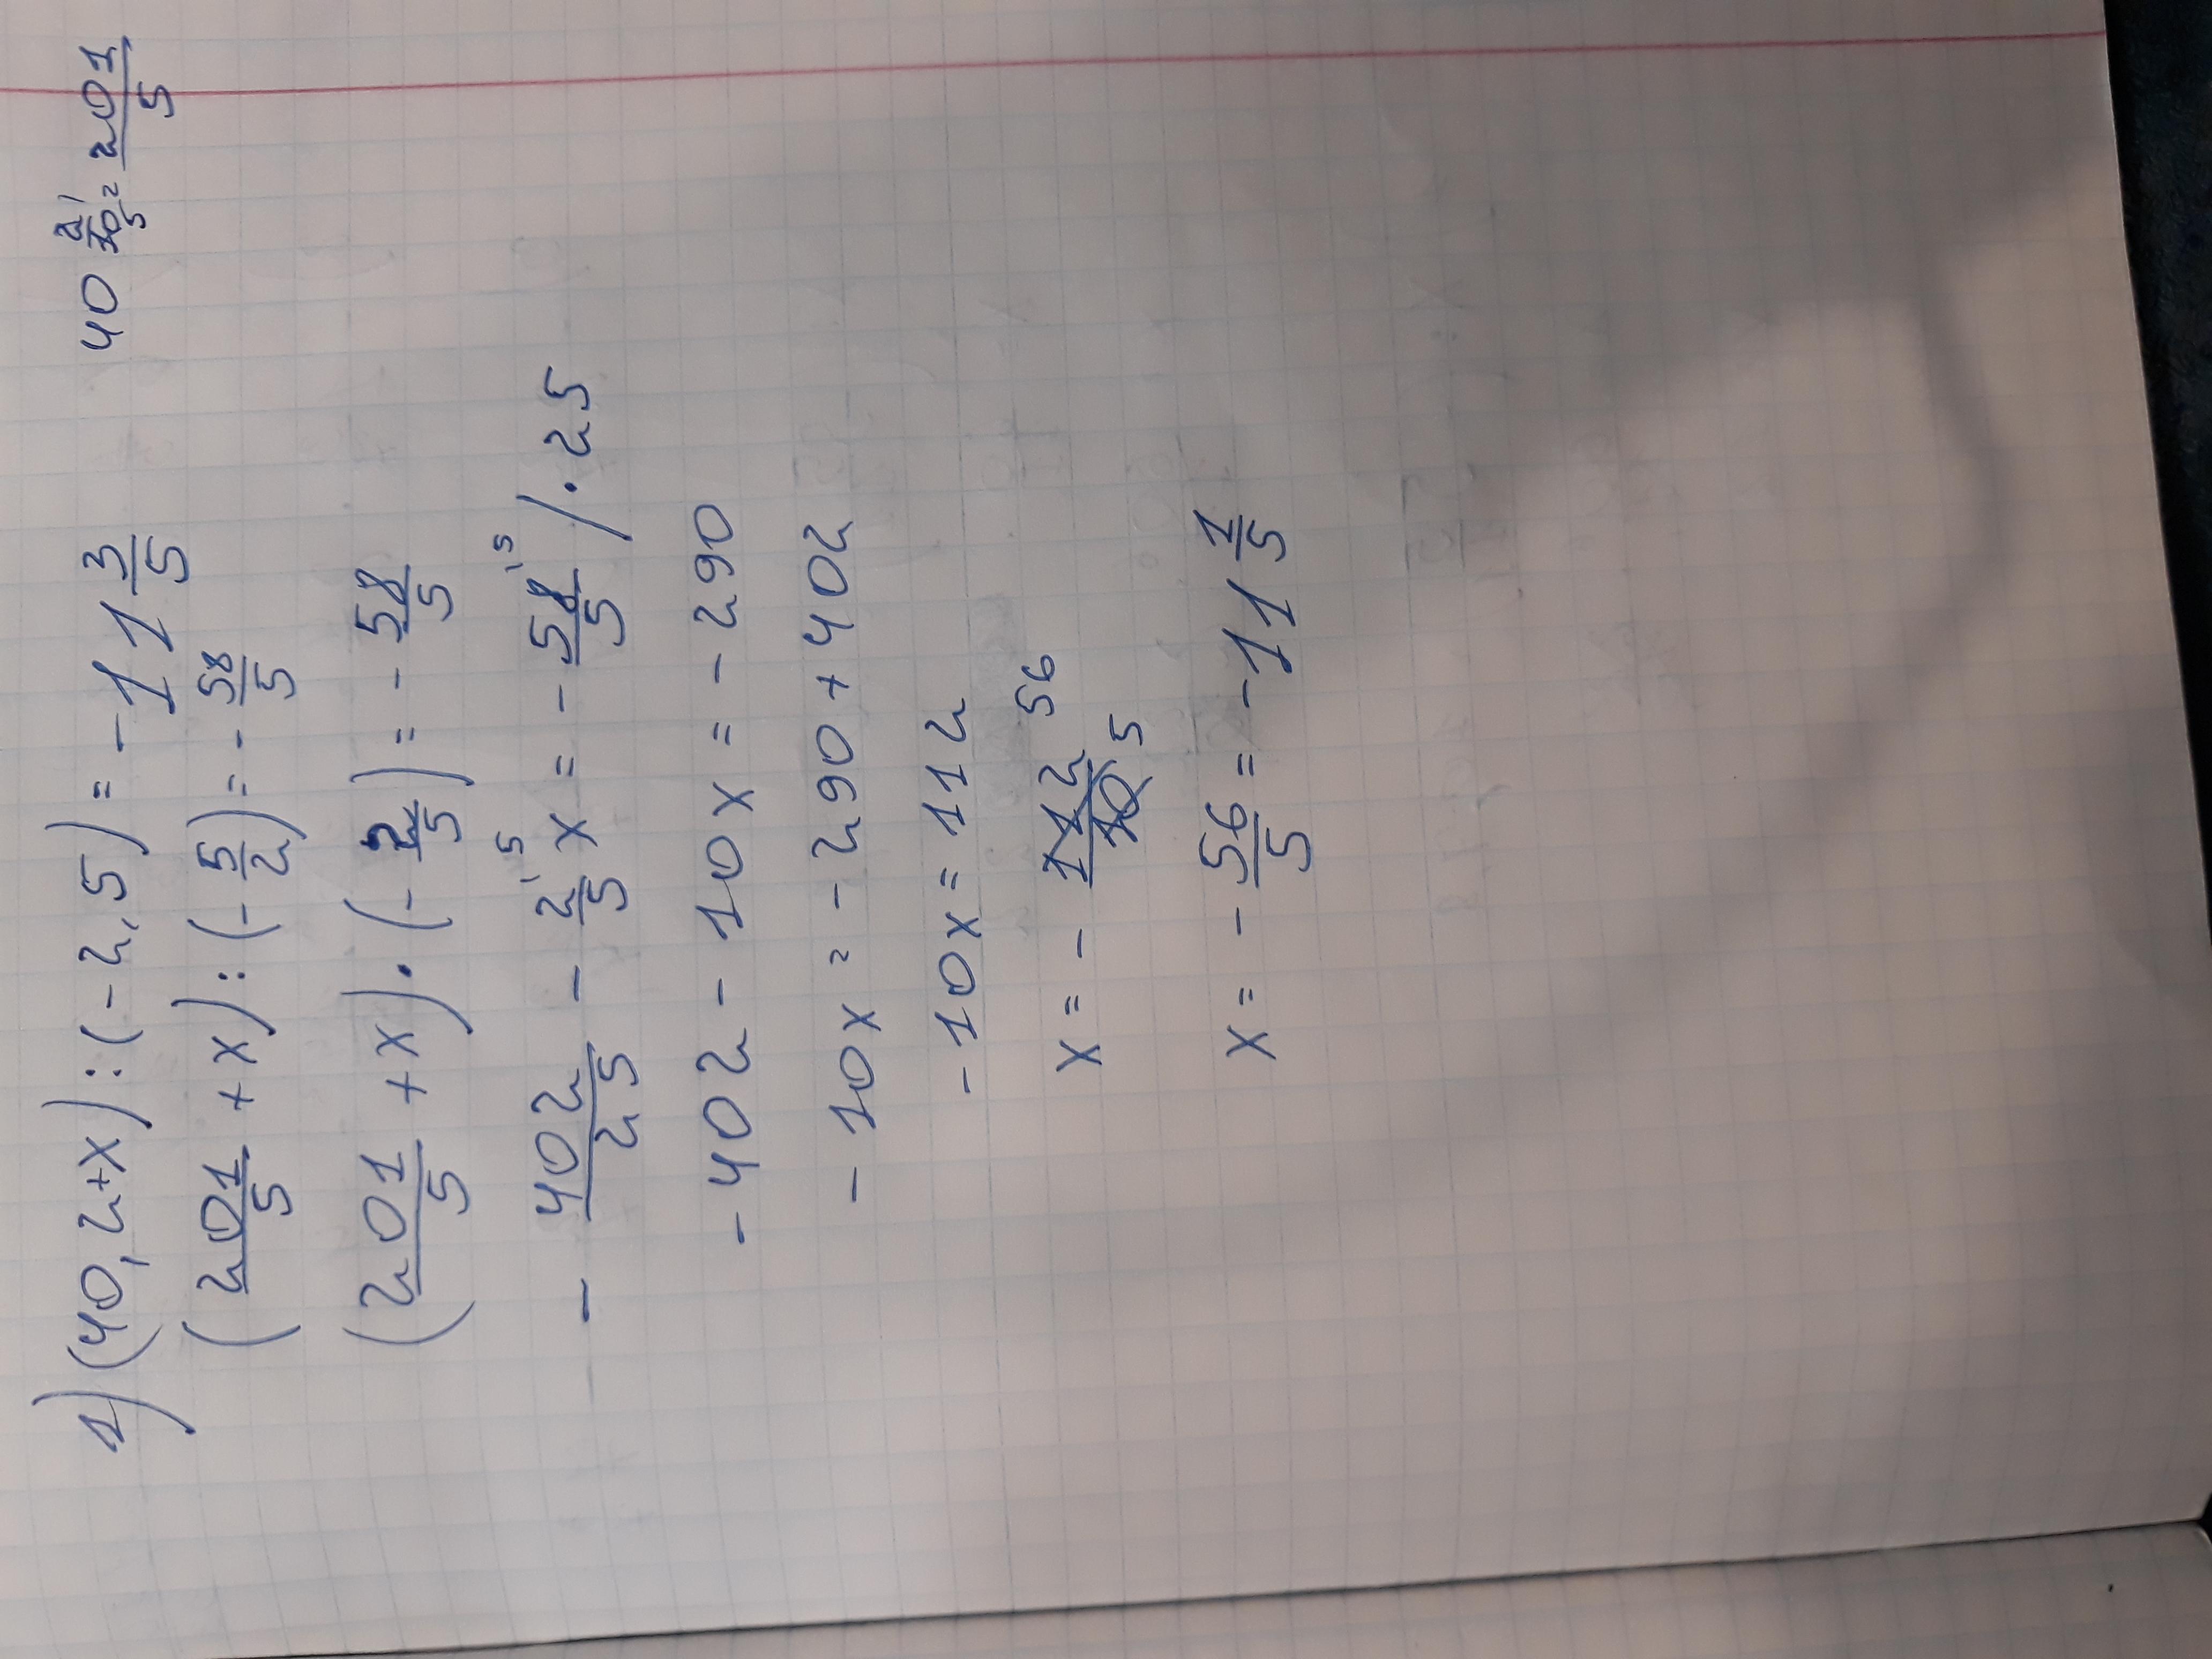 1) (40,2+x):(-2,5)=-11 3/5 40 2/10 1/5 = 201/5
(201/5 +x):(-5/2)=-58/5
(201/5 +x)·(-2/5)=-58/5
- 402/25 - 2/5 ˈ5 x = - 58/5 ˈ5 /·25
-402-10x=-290
-10x=-290+402
-10x=112
x=- 112/10 56/5
x=- 56/5 =-11 1/5